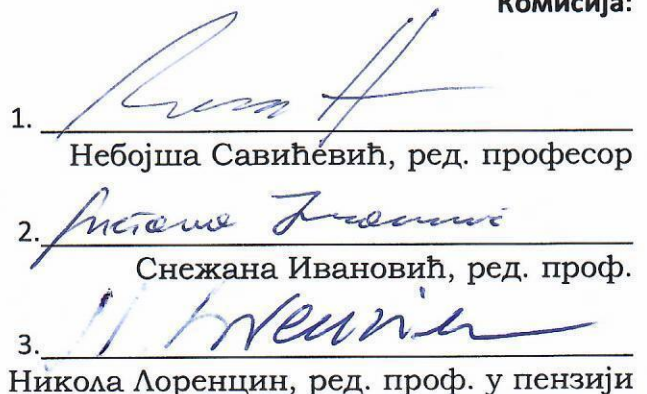 Комисија:
1.
Небојша Савићевић, ред. професор
2.
Снежана Ивановић, ред. проф.
3.
Никола Лоренцин, ред. проф. у пензији